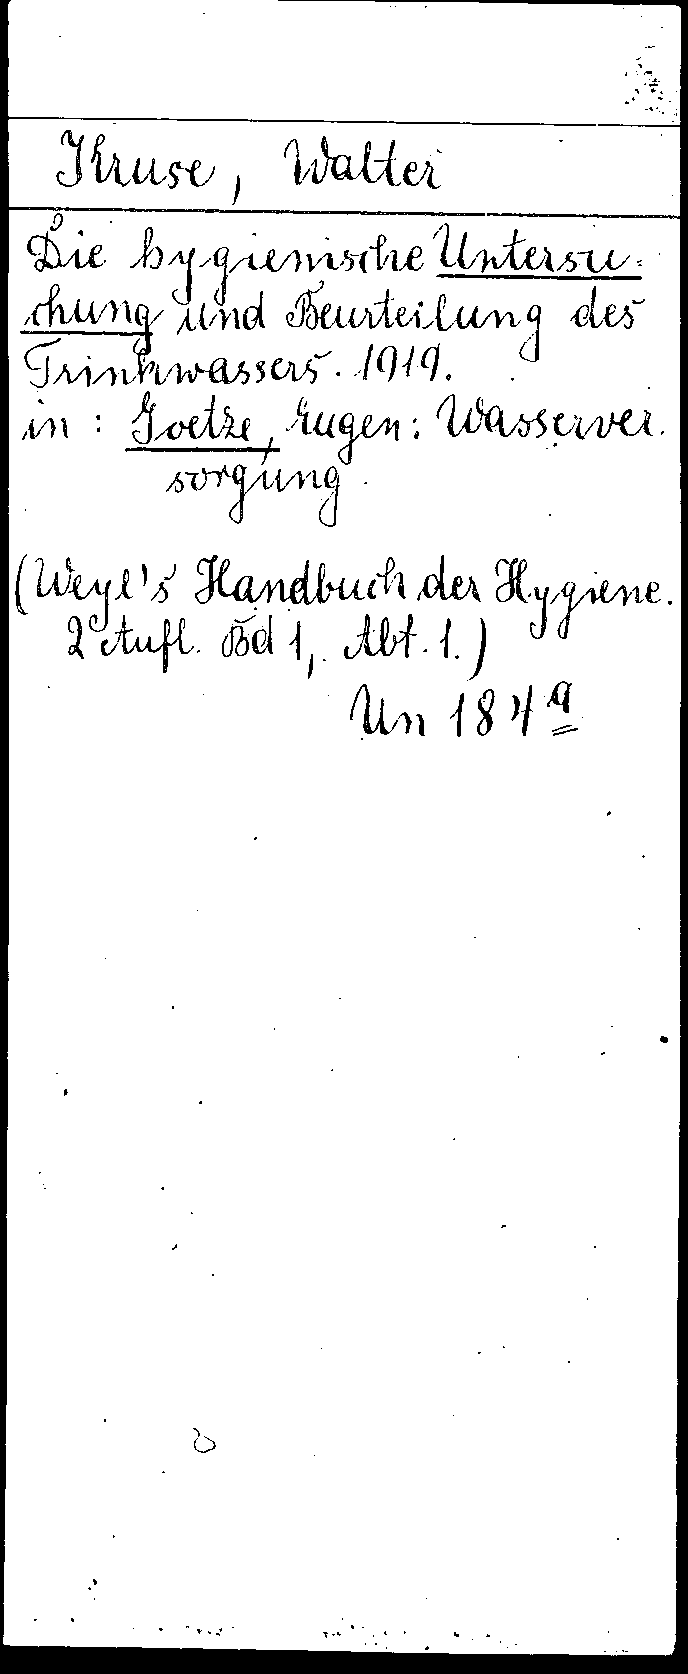 Kruse, Walter
Die hygienische Untersu-
chung und Beurteilung des
Trinkwassers. 1919.
in: Goetze, Eugen: Wasserver-
sorgung.
(Weyl's Handbuch der Hygiene.
2 Aufl. Bd 1, Abt. 1.)
Un 184 a